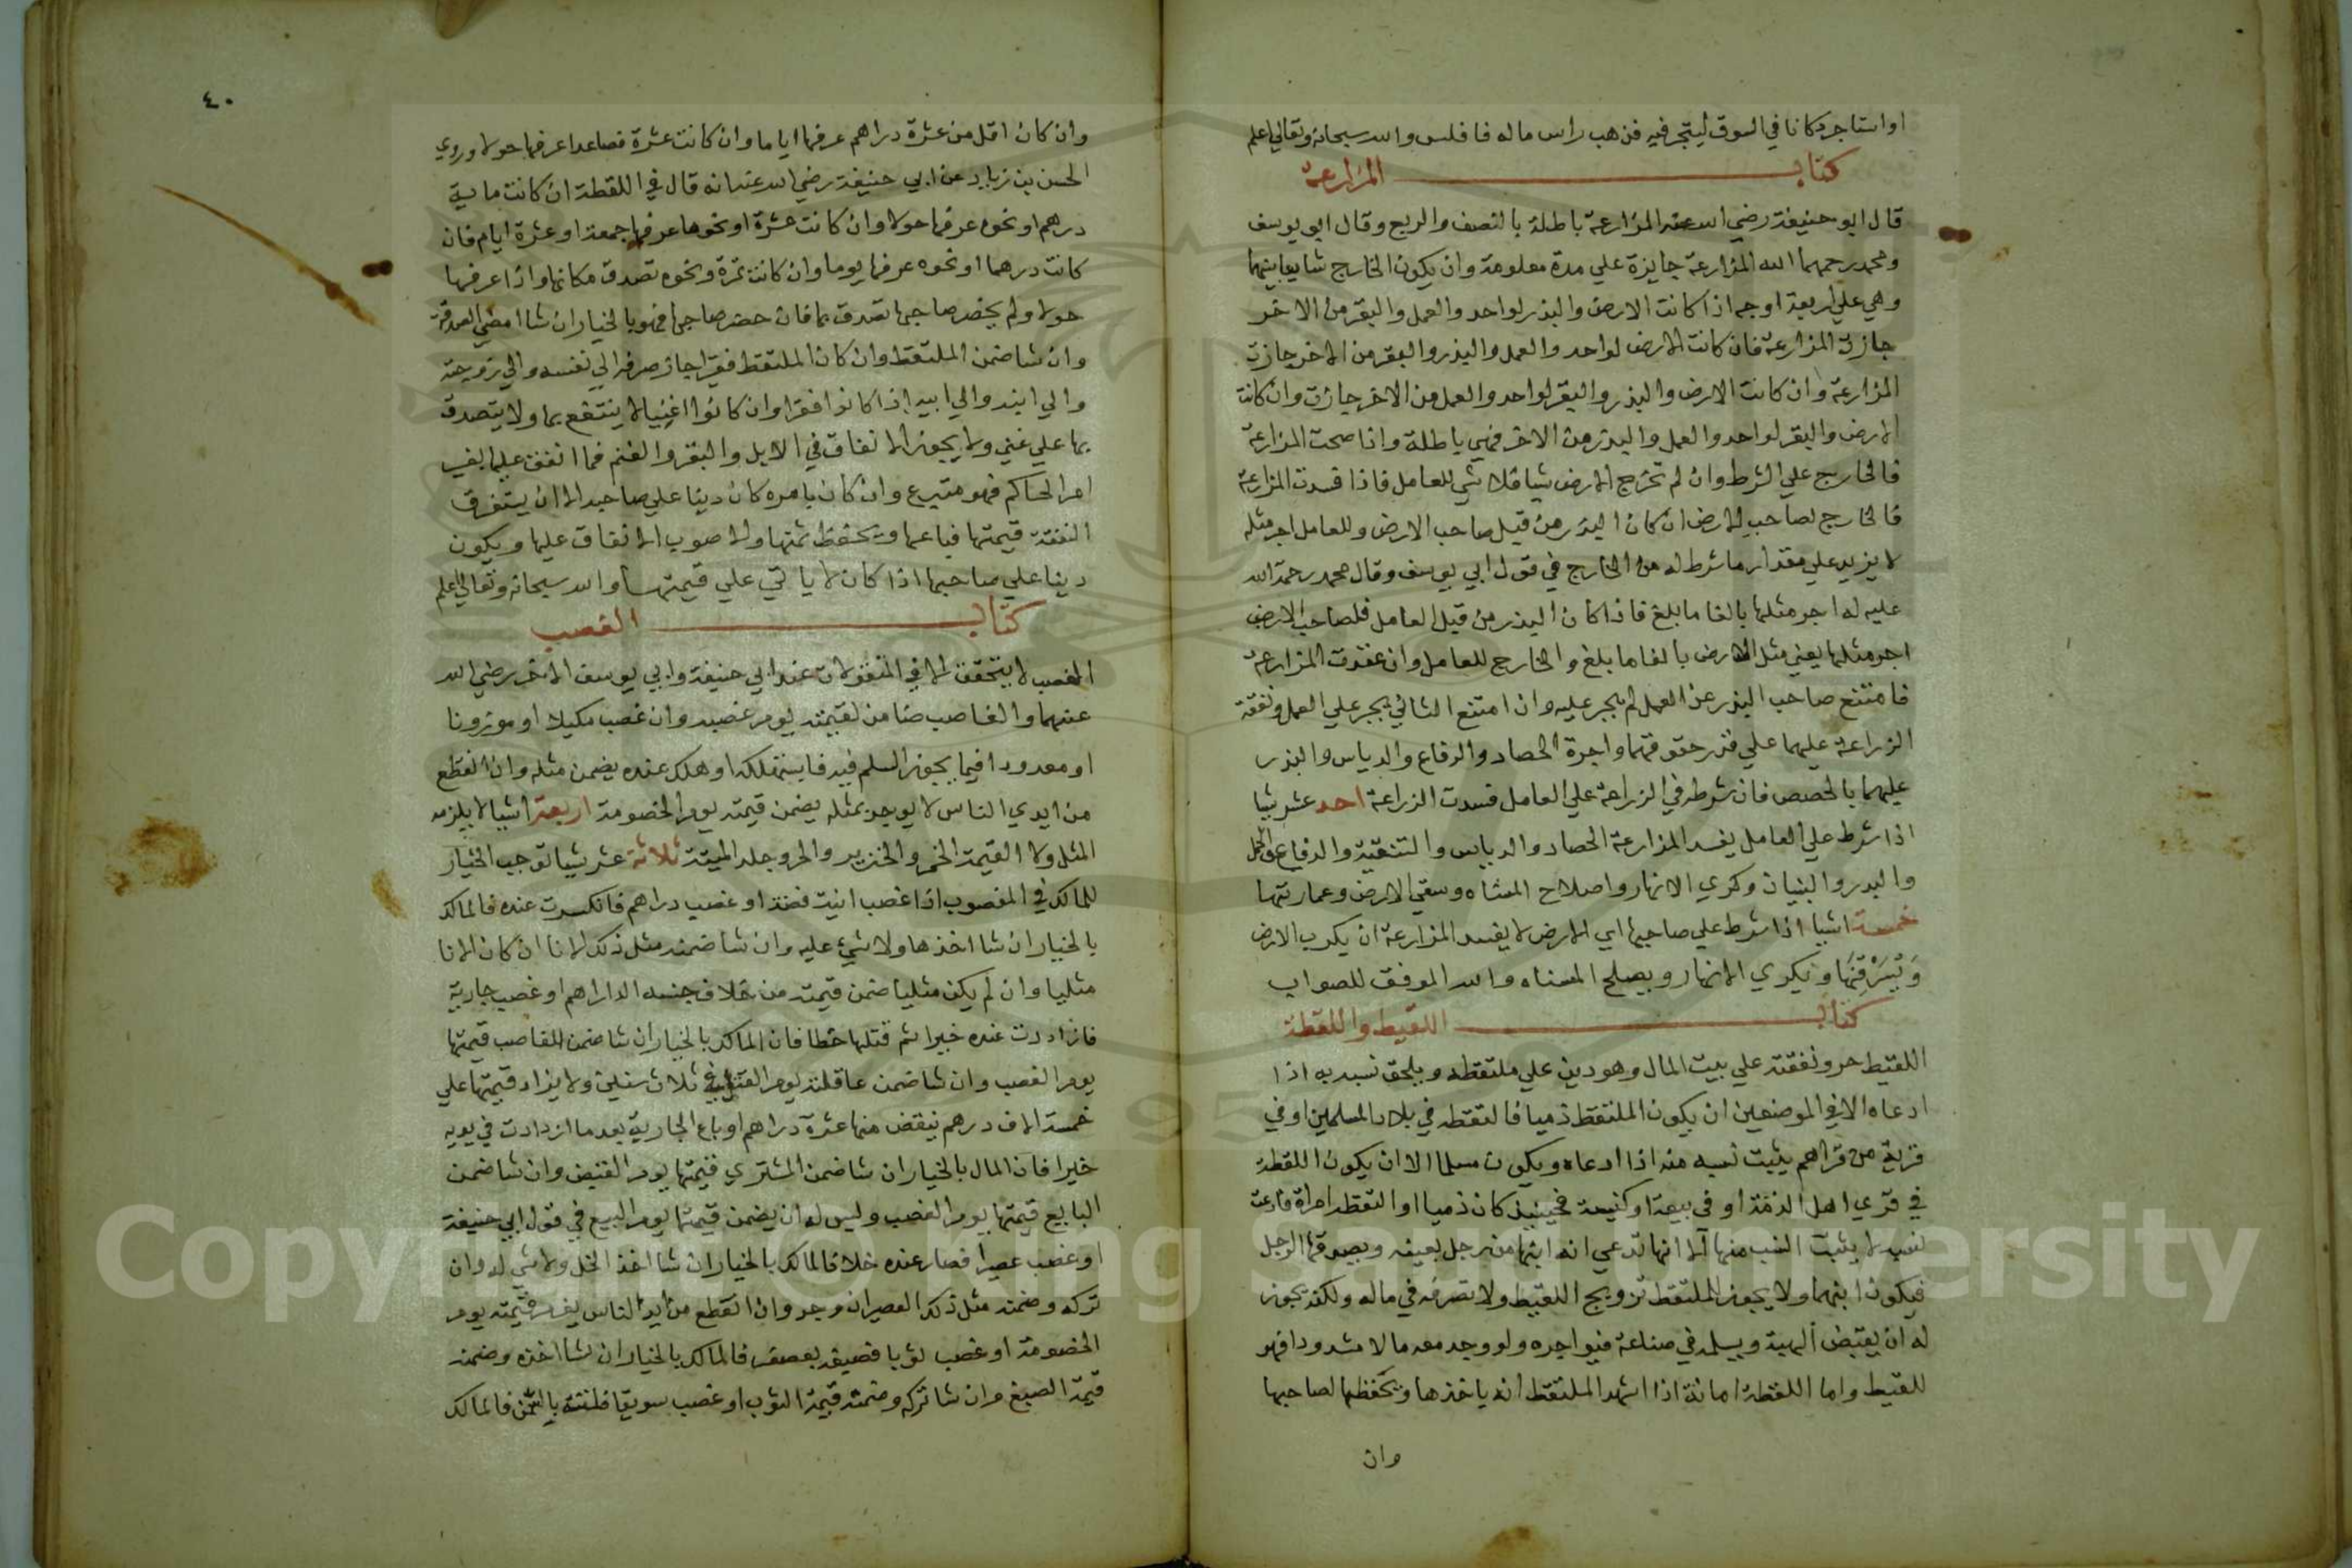 او استاجر دكانا في السوق ليتجر فيه فذهب راس ماله فافلس والله سبحانه وتعالي اعلم
كتاب المزارعة
قال ابو حنيفة رضي الله عنه المزارعة باطلة بالنصف والربع وقال ابي يوسف
ومحمد رحمهما الله المزارعة جايزة علي مدة معلومة وان يكون الخارج شايعا بينهما
وهي علي اربعة اوجه اذا كانت الارض والبذر لواحد والعمل والبقر من الاخر
جازت المزارعة فان كانت الارض لواحد والعمل والبذر والبقر من الاخر جازت
المزارعة وان كانت الارض والبذر والبقر لواحد والعمل من الاخر جازت وان كانت
الارض والبقر لواحد والعمل والبذر من الاخر فهي باطلة واذا صحت المزارعة
فالخارج علي الشرط وان لم تخرج الارض شيا فلا شي للعامل فاذا فسدت المزارعة
فالخارج لصاحب الارض ان كان البذر من قبل صاحب الارض وللعامل اجر مثله
لا يزيد علي مقدار ما شرط له من الخارج في قول ابي يوسف وقال محمد رحمة الله
عليه له اجر مثلها بالغا ما بلغ فاذا كان البذر من قبل العامل فلصاحب الارض
اجر مثلها يعني مثل الارض بالغا ما بلغ والخارج للعامل وان عقدت المزارعة
فامتنع صاحب البذر عن العمل لم يجبر عليه وان امتنع الثاني يجبر علي العمل ونفقة
الزراعة عليهما علي قدر حقوقهما واجرة الحصاد والرفاع والدياس والبذر
عليهما بالحصص فان شرطه في الزراعة علي العامل فسدت الزراعة احد عشر شيا
اذا شرط علي العامل يفسد المزارعة الحصاد والدياس والتنقية والرفاع والحمل
والبدر والبنيان وكري الانهار واصلاح المسناه وسقي الارض وعمارتها
خمسة اشيا اذا شرط علي صاحبها اي الارض لا يفسد المزارعة ان يكرب الارض
وَيُسَرْقِنَهَا ويكري الانهار ويصلح المسناه والله الموفق للصواب
كتاب اللقيط واللقطة
اللقيط حر ونفقته علي بيت المال وهو دين علي ملتقطه ويلحق نسبه به اذا
ادعاه الا في الموضعين ان يكون الملتقط ذميا فالتقطه في بلاد المسلمين او في
قرية من قراهم يثبت نسبه منه اذا ادعاه ويكون مسلما الا ان يكون اللقطة
في قري اهل الذمة او في بيعة او كنيسة فحينيذ كان ذميا او التقطه امراة فادعت
نسبه لا يثبت النسب منها الا انها تدعي انه ابنها من رجل بعينه ويصدقها الرجل
فيكون ابنهما ولا يجوز للملتقط تزويج اللقيط ولا تصرفه في ماله ولكنه يجوز
له ان يقبض الهبة ويسلمه في صناعة فيواجره ولو وجد معه مالا مشدودا فهو
للقيط واما اللقطة امانة اذا اشهد الملتقط انه ياخذها ويحفظها لصاحبها
وان
٤٠
وان كان اقل من عشرة دراهم عرفها اياما وان كانت عشرة فصاعدا عرفها حولا وروي
الحسن بن زياد عن ابي حنيفة رضي الله عنه انه قال في اللقطة ان كانت مايتي
درهم او نحوه عرفها حولا وان كانت عشرة او نحوها عرفها جمعة او عشرة ايام فان
كانت درهما او نحوه عرفها يوما وان كانت تمرة ونحوه تصدق مكانها واذا عرفها
حولا ولم يحضر صاحبها تصدق بها فان حضر صاحبها فهو بالخيار ان شا امضي الصدقة
وان شا ضمن الملتقط وان كان الملتقط فقيرا جاز صرفه الي نفسه والي زوجته
والي ابنه والي ابيه اذا كانوا فقرا وان كانوا اغنيا لا ينتفع بها ولا يتصدق
بها علي غني ولا يجوز الانفاق في الابل والبقر والغنم فما انفق عليها بغير
امر الحاكم فهو متبرع وان كان بامره كان دينا علي صاحبه الا ان يستغرق
النفقة قيمتها فباعها ويحفظ ثمنها والاصوب الانفاق عليها ويكون
دينا علي صاحبها اذا كان لا ياتي علي قيمتها والله سبحانه وتعالي اعلم
كتاب الغصب
الغصب لا يتحقق الا في المنقولات عند ابي حنيفة وابي يوسف الاخر رضي الله
عنهما والغاصب ضامن لقيمته يوم غصبه وان غصب مكيلا او موزونا
او معدودا فيما يجوز السلم فيه فاستهلكه او هلك عنده يضمن مثله وان انقطع
من ايدي الناس لا يوجد بمثله يضمن قيمته يوم الخصومة اربعة اشيا لا يلزمه
المثل ولا القيمة الخمر والخنزير والحر وجلد الميتة ثلاثة عشر شيا توجب الخيار
للمالك في المغصوب اذا غصب انية فضة او غصب دراهم فانكسرت عنده فالمالك
بالخيار ان شا اخذها ولا شيء عليه وان شا ضمنه مثل ذلك الانا ان كان الانا
مثليا وان لم يكن مثليا ضمن قيمته من خلاف جنسه الداراهم او غصب جارية
فازدادت عنده خيرا ثم قتلها خطا فان المالك بالخيار ان شا ضمن الغاصب قيمتها
يوم الغصب وان شا ضمن عاقلته يوم القتل في ثلاث سنين ولا يزاد قيمتها علي
خمسة الاف درهم ينقض منها عشرة دراهم او باع الجارية بعد ما ازدادت في يديه
خيرا فان المال بالخيار ان شا ضمن المشتري قيمتها يوم القبض وان شا ضمن
البايع قيمتها يوم الغصب وليس له ان يضمن قيمتها يوم البيع في قول ابي حنيفة
او غصب عصيرا فصار عنده خلا فالمالك بالخيار ان شا اخذ الخل ولا شي له وان
تركه وضمنه مثل ذلك العصير ان وجد وان انقطع من ايد الناس يغرم قيمته يوم
الخصومة او غصب ثوبا فصبغه بعصفر فالمالك بالخيار ان شا اخذه وضمنه
قيمة الصبغ وان شا تركه وضمنه قيمة الثوب او غصب سويقا فلتته بالسمن فالمالك
Copyright © King Saud University